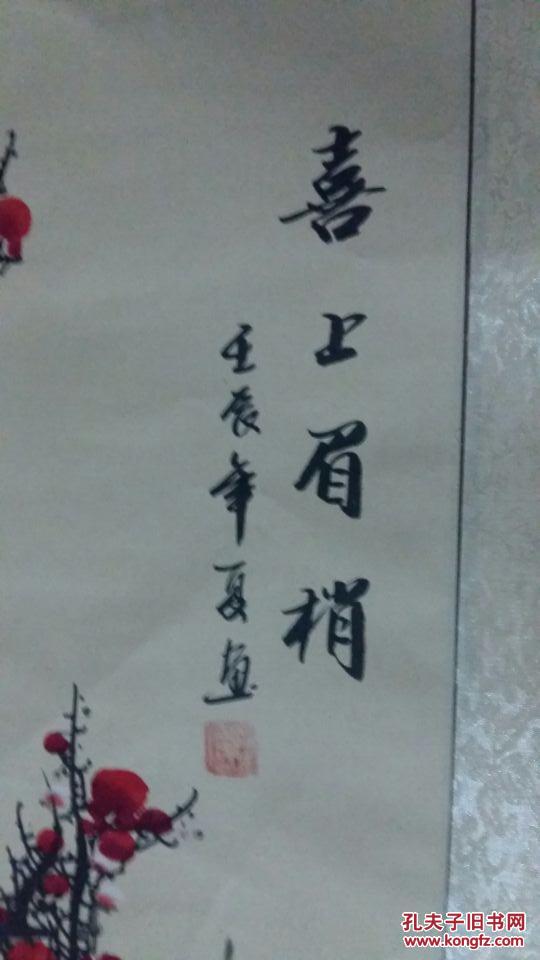 喜上眉梢
壬辰年夏画
孔夫子旧书网
www.kongfz.com